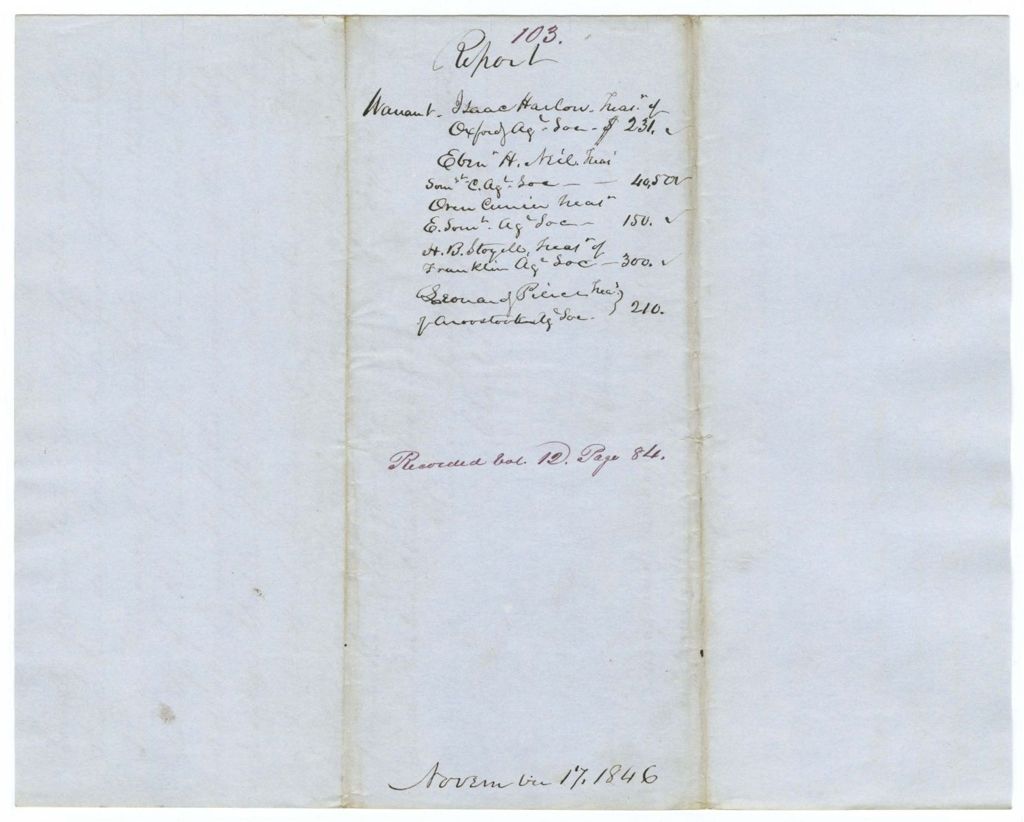 103.
Report
Warrant. Isaac Harlow. Treasr of
Oxford Agl Soc - $ 231. ✓
Ebenr H. Neil, Treasr
Somst C. Agl Soc — — 40,50 ✓
Oren Currier Treasr
E. Somt. Agl Soc — 150. ✓
H. B. Stoyell, Treasr of
Franklin Agl Soc — 300. ✓
Leonard Pierce Treasr }
of Aroostook Agl Soc. } 210.
Recorded Vol. 12. Page 84.
November 17. 1846